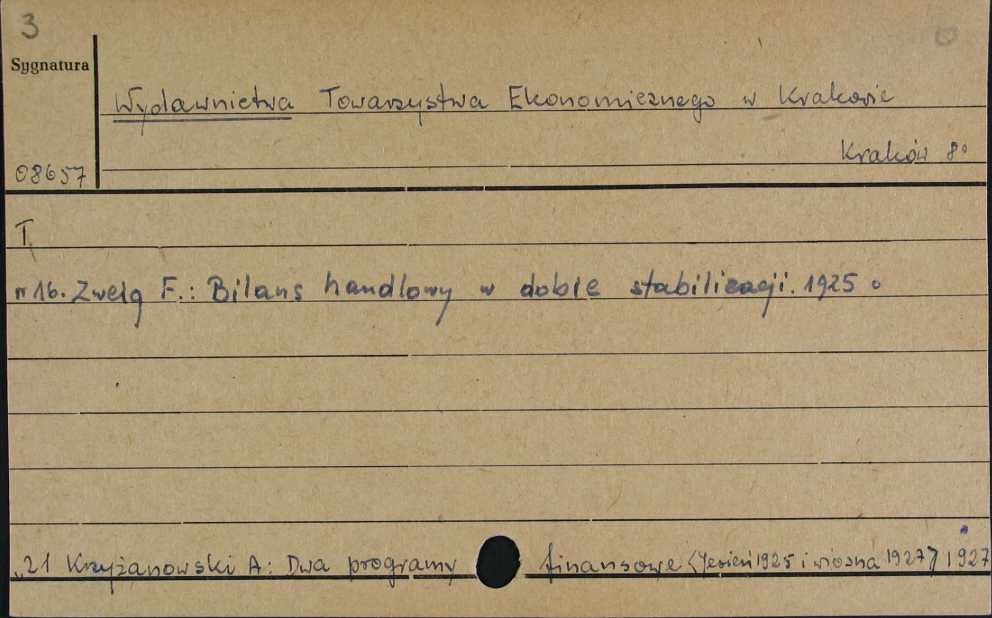 3
Sygnatura
Wydawnictwa Towarzystwa Ekonomicznego w Krakowie
Kraków 8°
08657
T
" 16. Zweig F.: Bilans handlowy w dobie stabilizacji. 1925
" 21 Krzyżanowski A: Dwa programy finansowe (Jesień 1925 i wiosna 1927) 1927